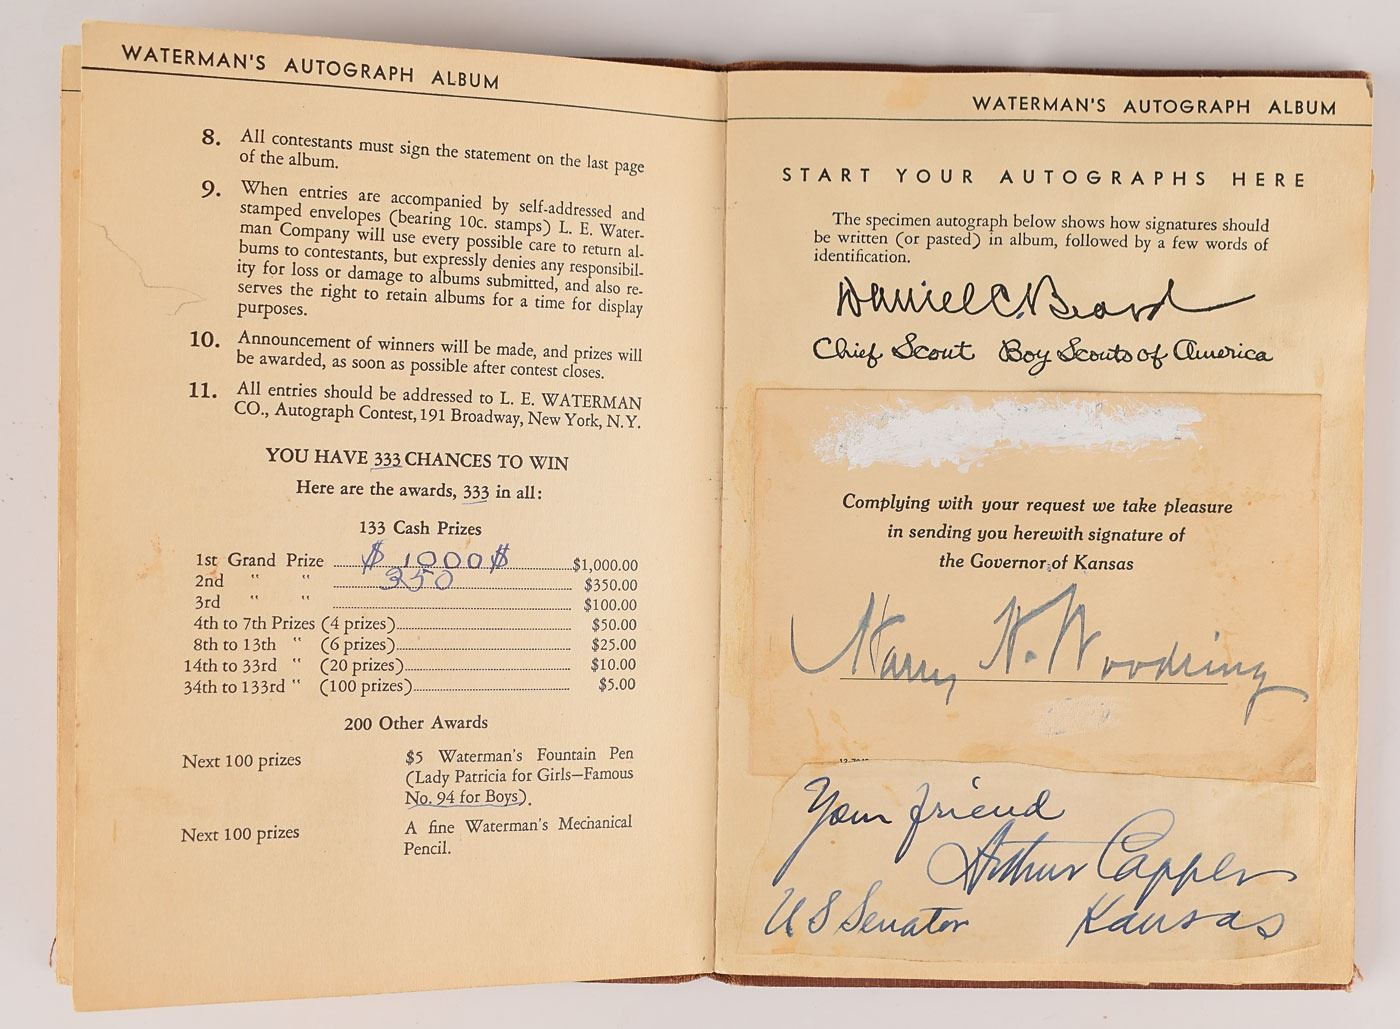 WATERMAN'S AUTOGRAPH ALBUM
8. All contestants must sign the statement on the last page
of the album.
9. When entries are accompanied by self-addressed and
stamped envelopes (bearing 10c. stamps) L. E. Water-
man Company will use every possible care to return al-
bums to contestants, but expressly denies any responsibil-
ity for loss or damage to albums submitted, and also re-
serves the right to retain albums for a time for display
purposes.
10. Announcement of winners will be made, and prizes will
be awarded, as soon as possible after contest closes.
11. All entries should be addressed to L. E. WATERMAN
CO., Autograph Contest, 191 Broadway, New York, N.Y.
YOU HAVE 333 CHANCES TO WIN
Here are the awards, 333 in all:
133 Cash Prizes
1st Grand Prize $ 1000$ $1,000.00
2nd " " 350 $350.00
3rd " " $100.00
4th to 7th Prizes (4 prizes) $50.00
8th to 13th " (6 prizes) $25.00
14th to 33rd " (20 prizes) $10.00
34th to 133rd " (100 prizes) $5.00
200 Other Awards
Next 100 prizes $5 Waterman's Fountain Pen
(Lady Patricia for Girls—Famous
No. 94 for Boys).
Next 100 prizes A fine Waterman's Mechanical
Pencil.
WATERMAN'S AUTOGRAPH ALBUM
START YOUR AUTOGRAPHS HERE
The specimen autograph below shows how signatures should
be written (or pasted) in album, followed by a few words of
identification.
Daniel C. Beard
Chief Scout Boy Scouts of America
Complying with your request we take pleasure
in sending you herewith signature of
the Governor of Kansas
Harry H. Woodring
Your friend
Arthur Capper
US Senator Kansas